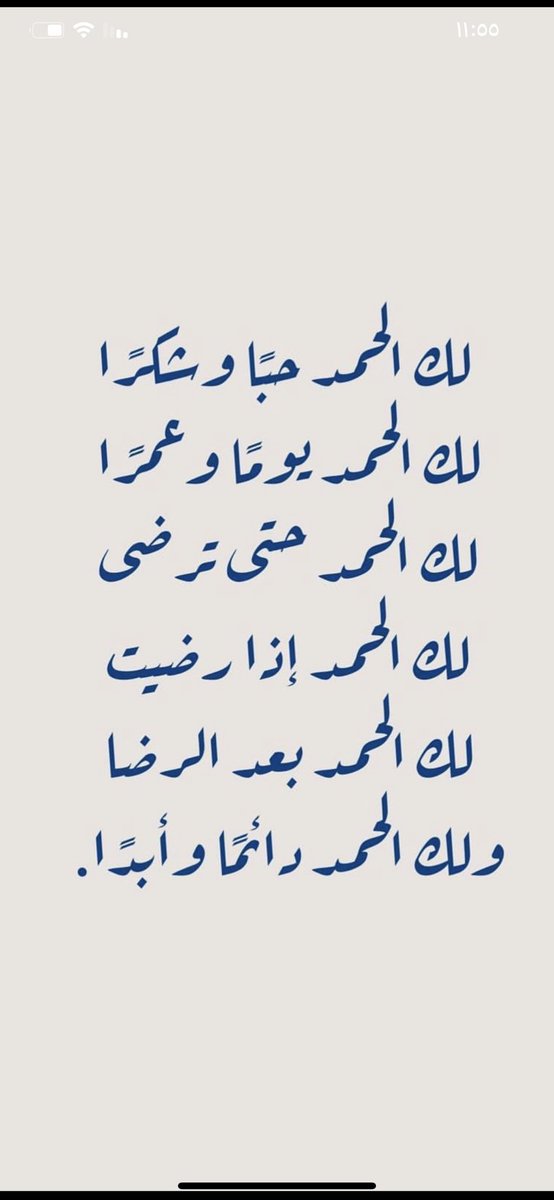 ١١:٥٥
لك الحمد حبًا و شكرًا
لك الحمد يومًا و عمرًا
لك الحمد حتى ترضى
لك الحمد إذا رضيت
لك الحمد بعد الرضا
ولك الحمد دائمًا و أبدًا.